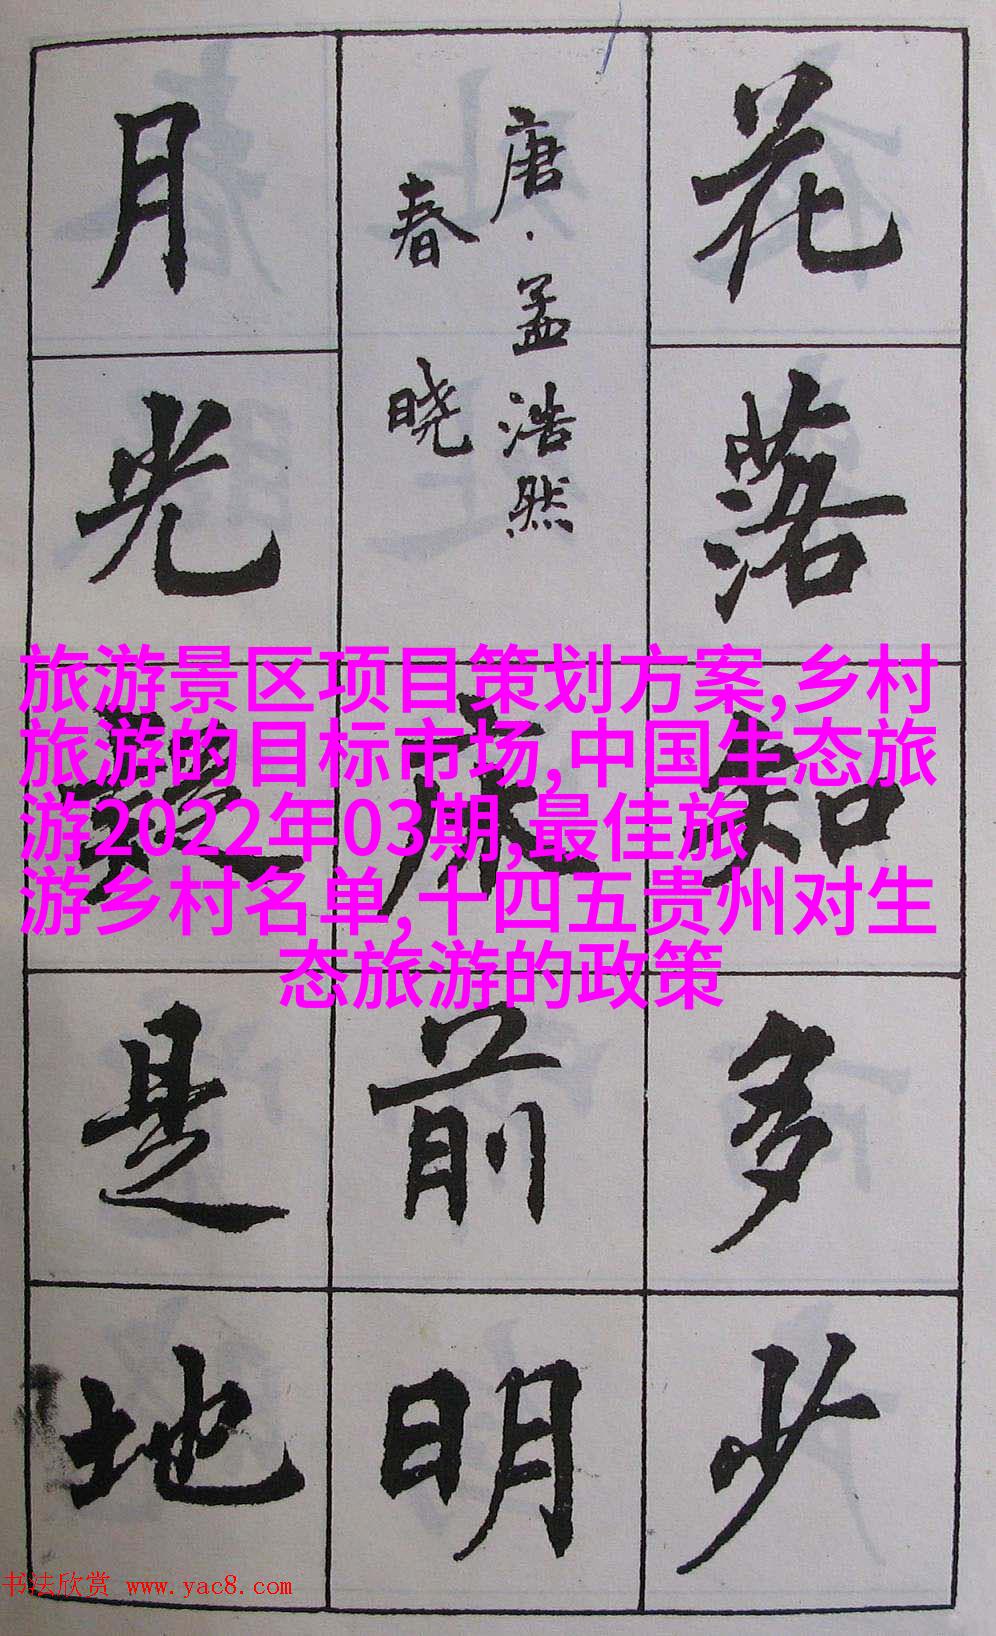 花落知多少
唐·孟浩然
春晓
床前明
月光疑是地
旅游景区项目策划方案,乡村
旅游的目标市场,中国生态旅
游2022年03期,最佳旅
游乡村名单,十四五贵州对生
态旅游的政策
书法欣赏 www.yac8.com